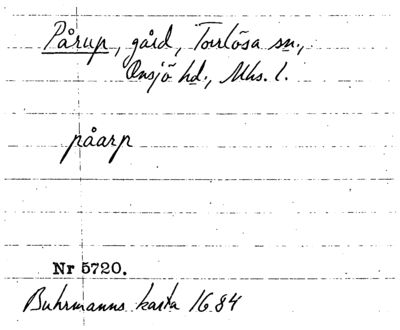 Pårup, gård, Torrlösa sn.,
Onsjö hd., Mhs. l.
påarp
Nr 5720.
Buhrmanns karta 1684